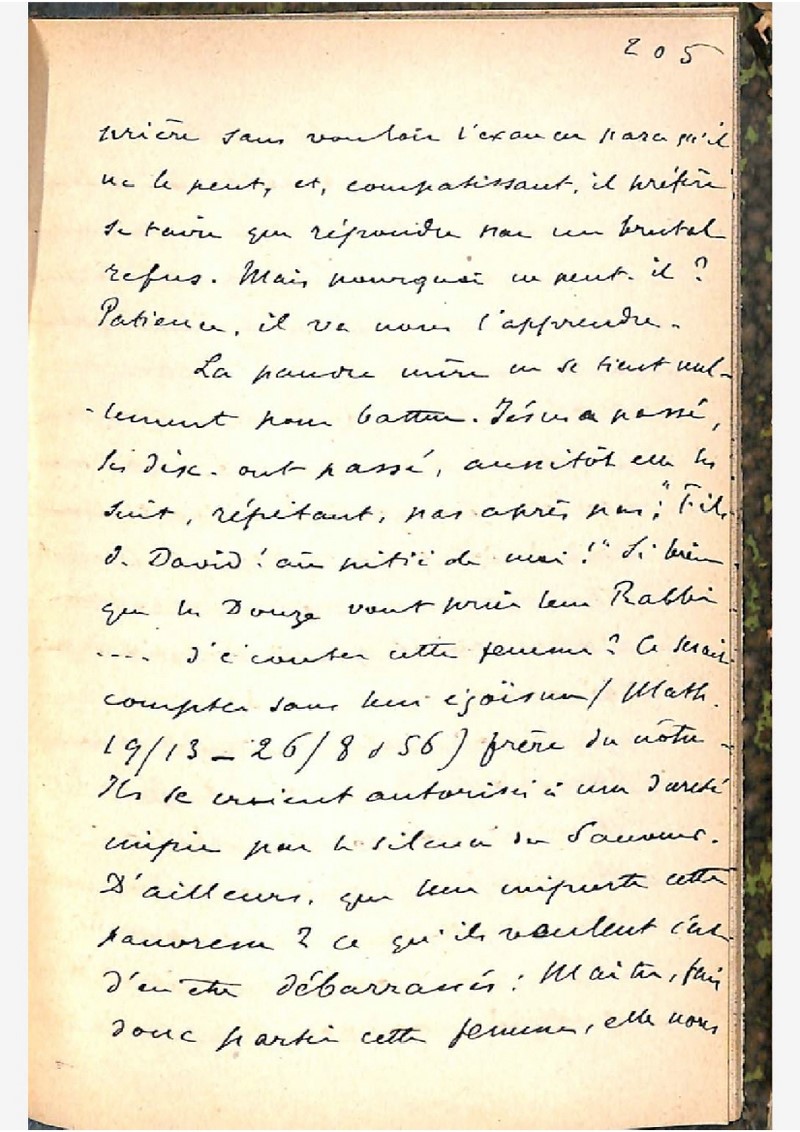 205
prière sans vouloir l'exaucer parce qu'il
ne le peut, et, compatissant, il préfère
se taire que répondre par un brutal
refus. Mais pourquoi ne peut-il ?
Patience, il va nous l'apprendre.
La pauvre mère ne se tient nul-
-lement pour battue. Jésus a passé,
les disc. ont passé, aussitôt elle les
suit, répétant, pas après pas : "Fils
de David ! aie pitié de moi !" Si bien
que les Douze vont prier leur Rabbi
.... d'écouter cette femme ? Ce serait
compter sans leur égoïsme / Math.
19/13 - 26/8 à 56) frère du nôtre -
Ils se croient autorisés à une dureté
impie par le silence du Sauveur.
D'ailleurs, que leur importe cette
pauvresse ? ce qu'ils veulent c'est
d'en être débarrassés : Maître, fais
donc partir cette femme, elle nous